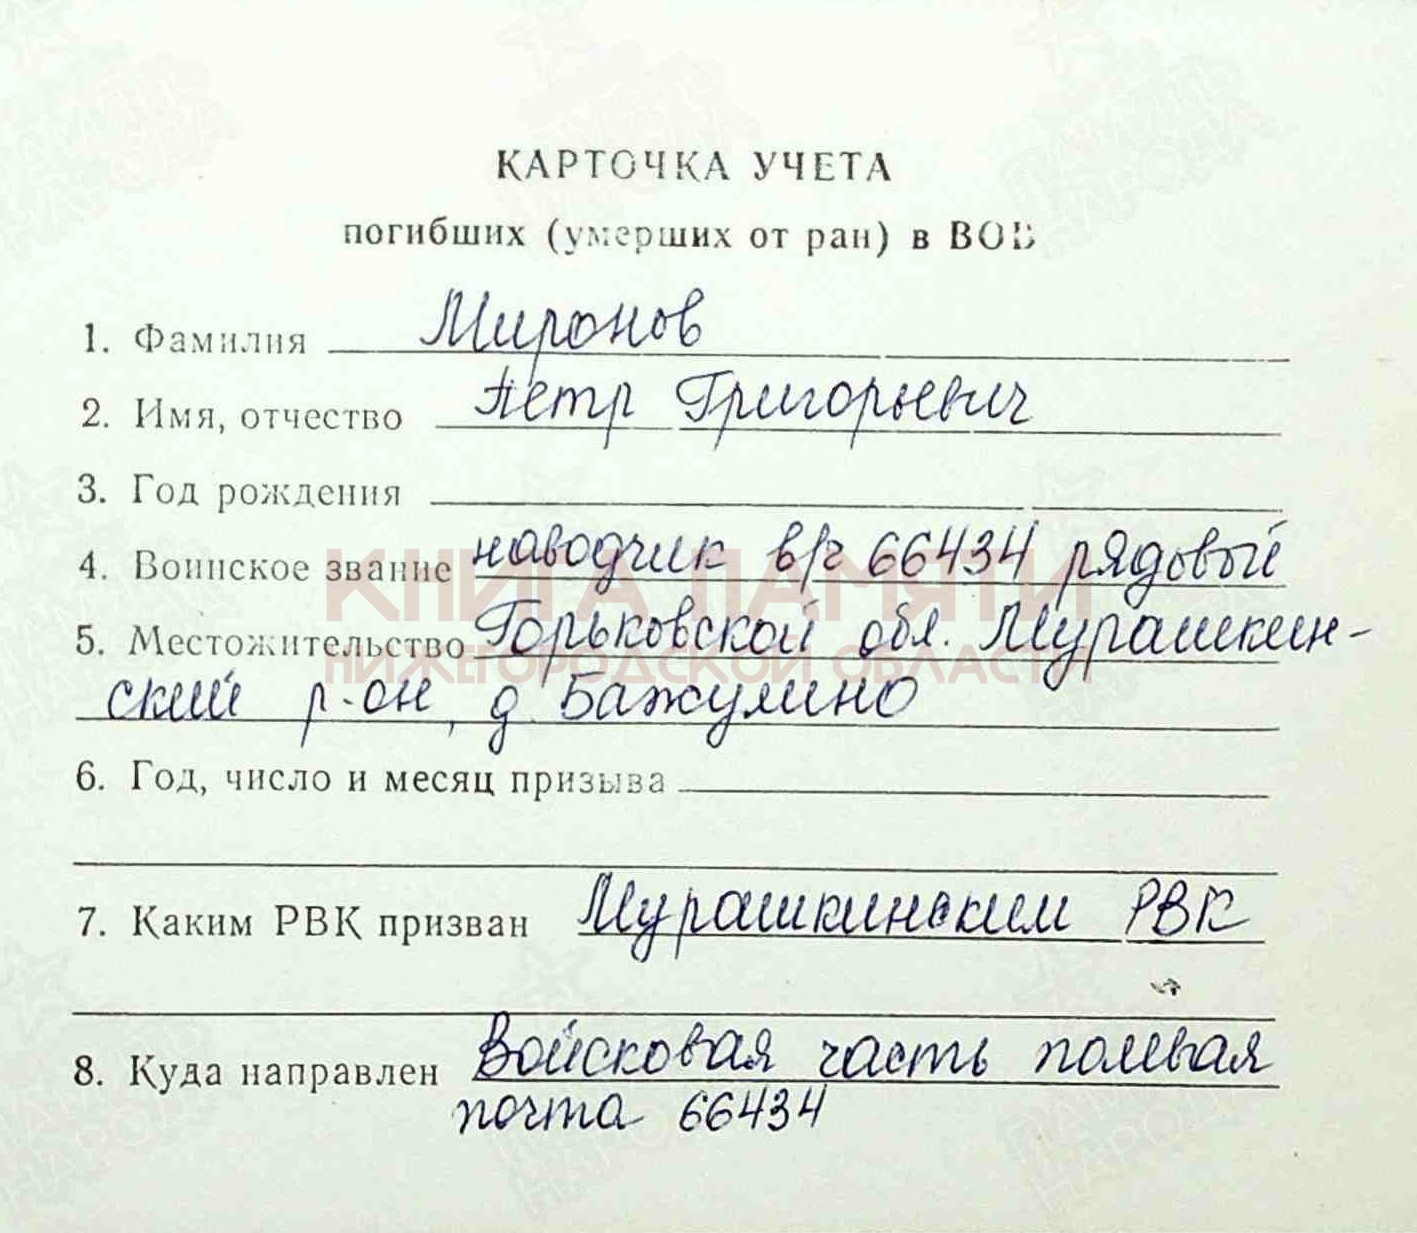 КАРТОЧКА УЧЕТА
погибших (умерших от ран) в ВОВ
1. Фамилия Миронов
2. Имя, отчество Петр Григорьевич
3. Год рождения
4. Воинское звание наводчик в/ч 66434 рядовой
КНИГА ПАМЯТИ
5. Местожительство Горьковской обл. Мурашкин-
НИЖЕГОРОДСКОЙ ОБЛАСТИ
ский р-он, д. Бажулино
6. Год, число и месяц призыва
7. Каким РВК призван Мурашкинским РВК
8. Куда направлен Войсковая часть полевая
почта 66434